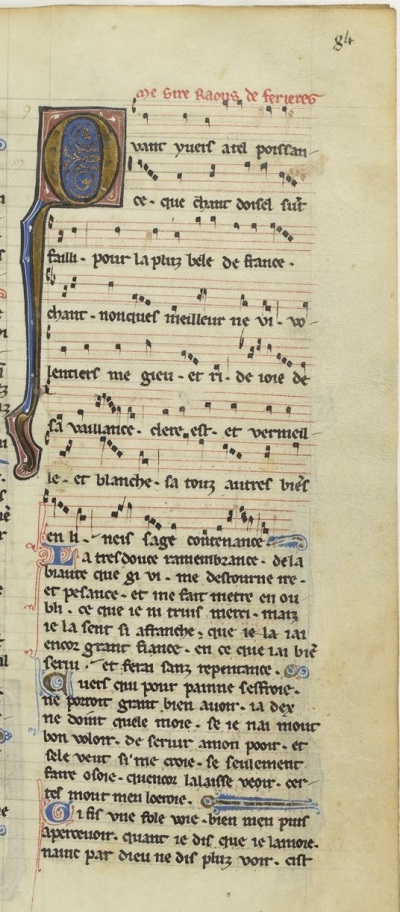 84
Me sire Raous de ferieres
Quant yuers a tel poissan
ce · que chant doisel sūt
failli · pour la pluz bele de france ·
chant · nonques meilleur ne vi · vo
lentiers me gieu · et ri · de ioie de
sa vaillance · clere est · et vermeil
le · et blanche · sa touz autres biēs
en li · neis sage contenance
La tresdouce ramembrance · de la
biaute que gi vi · me destourne ire ·
et pesance · et me fait metre en ou
bli · ce que ie ni truis merci · maiz
ie la sent si afranche · que ie la iai
encor grant fiance · en ce que iai biē
serui · et ferai sanz repentance ·
qui pour painne seffroie ·
ne porroit grant bien auoir · ia dex
ne doint quele moie · se ie nai mout
bon voloir · de seruir amon pooir · et
sele veut si me croie · se seulement
faire osoie · quencor lalaisse veoir · cer
tes mout men loeroie ·
Ci fis vne fole voie · bien men puis
aperceuoir · quant ie dis que ie lamoie ·
nainc par dieu ne dis pluz voir · cist